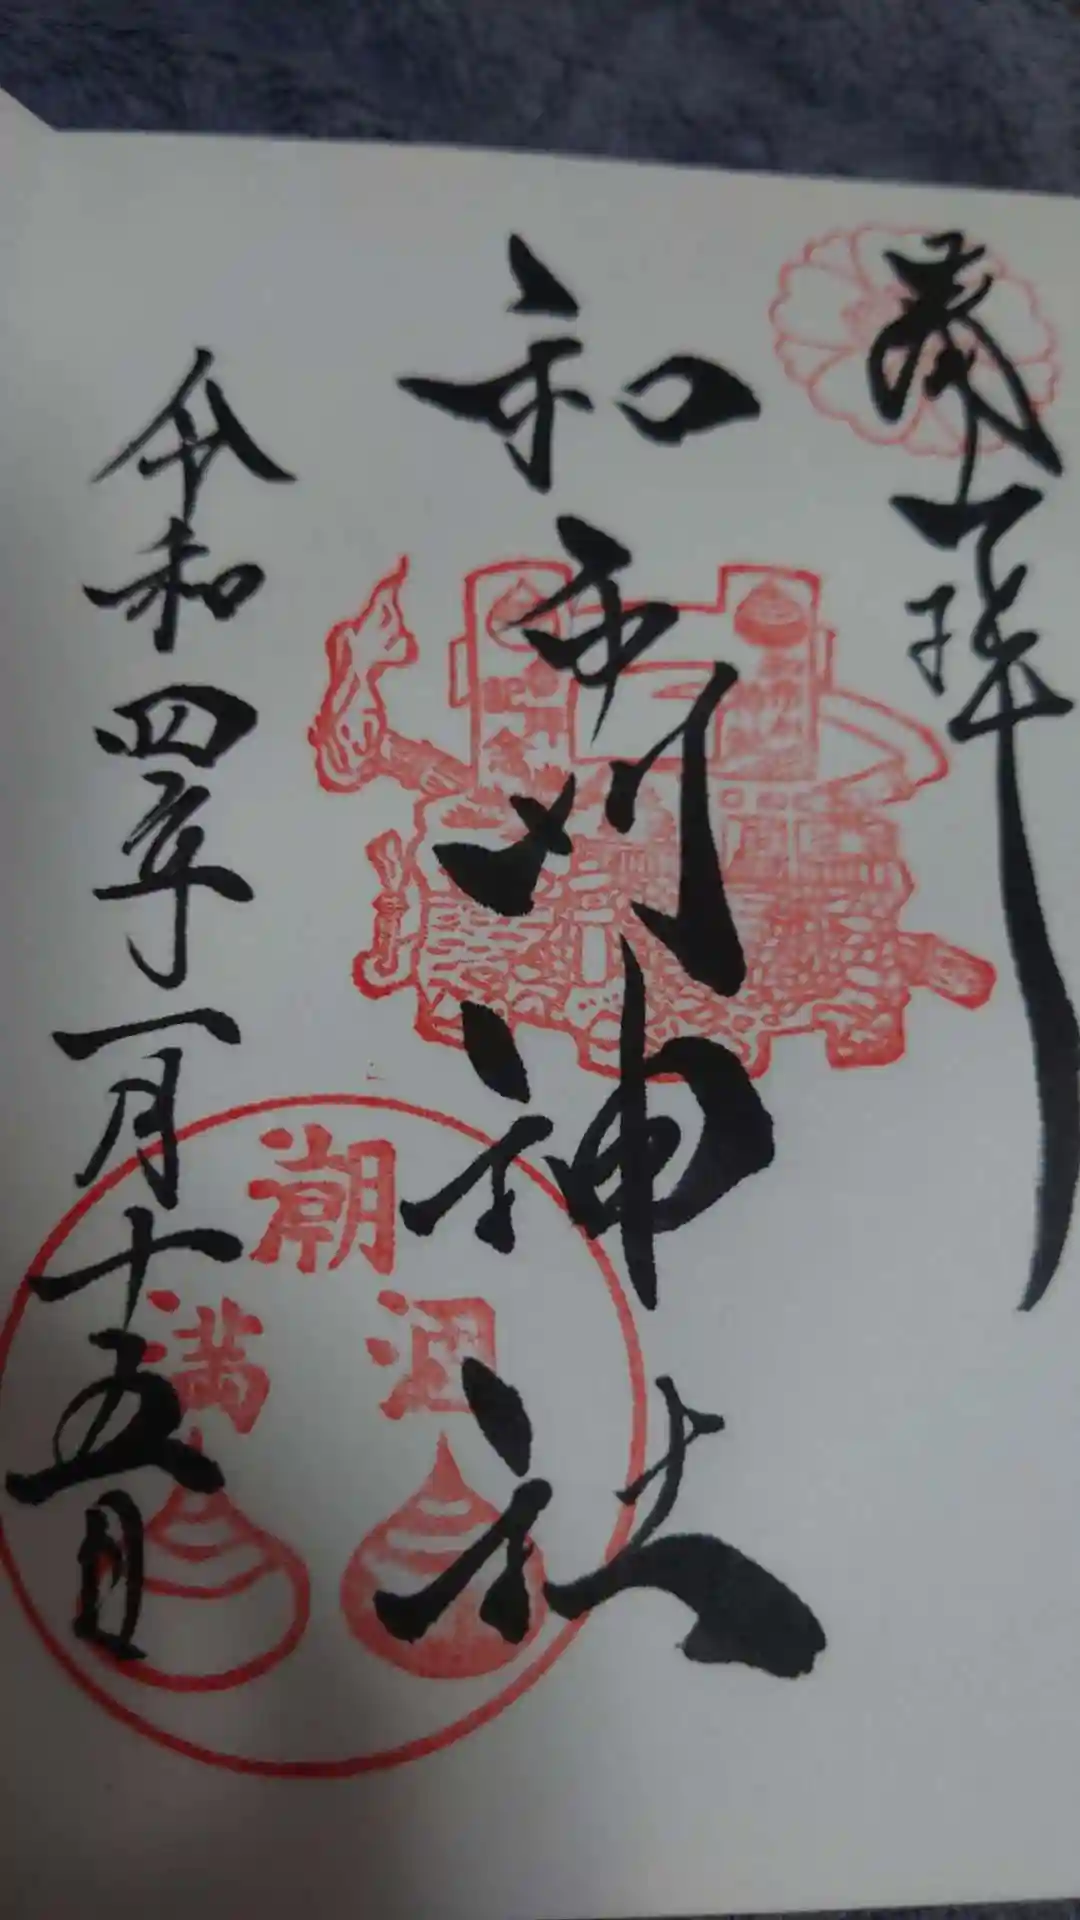 奉拝
和布刈神社
令和四年一月十五日
潮
満 涸